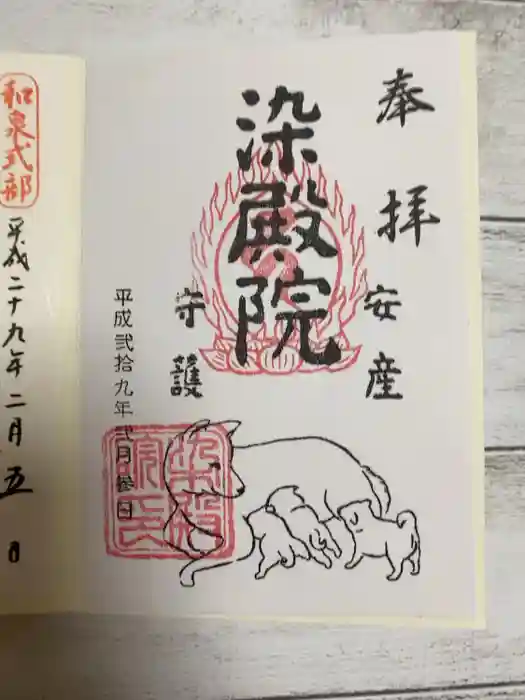 奉拝
安産
染殿院
守護
平成弐拾九年弐月参日
染殿院印
和泉式部
平成二十九年二月五日